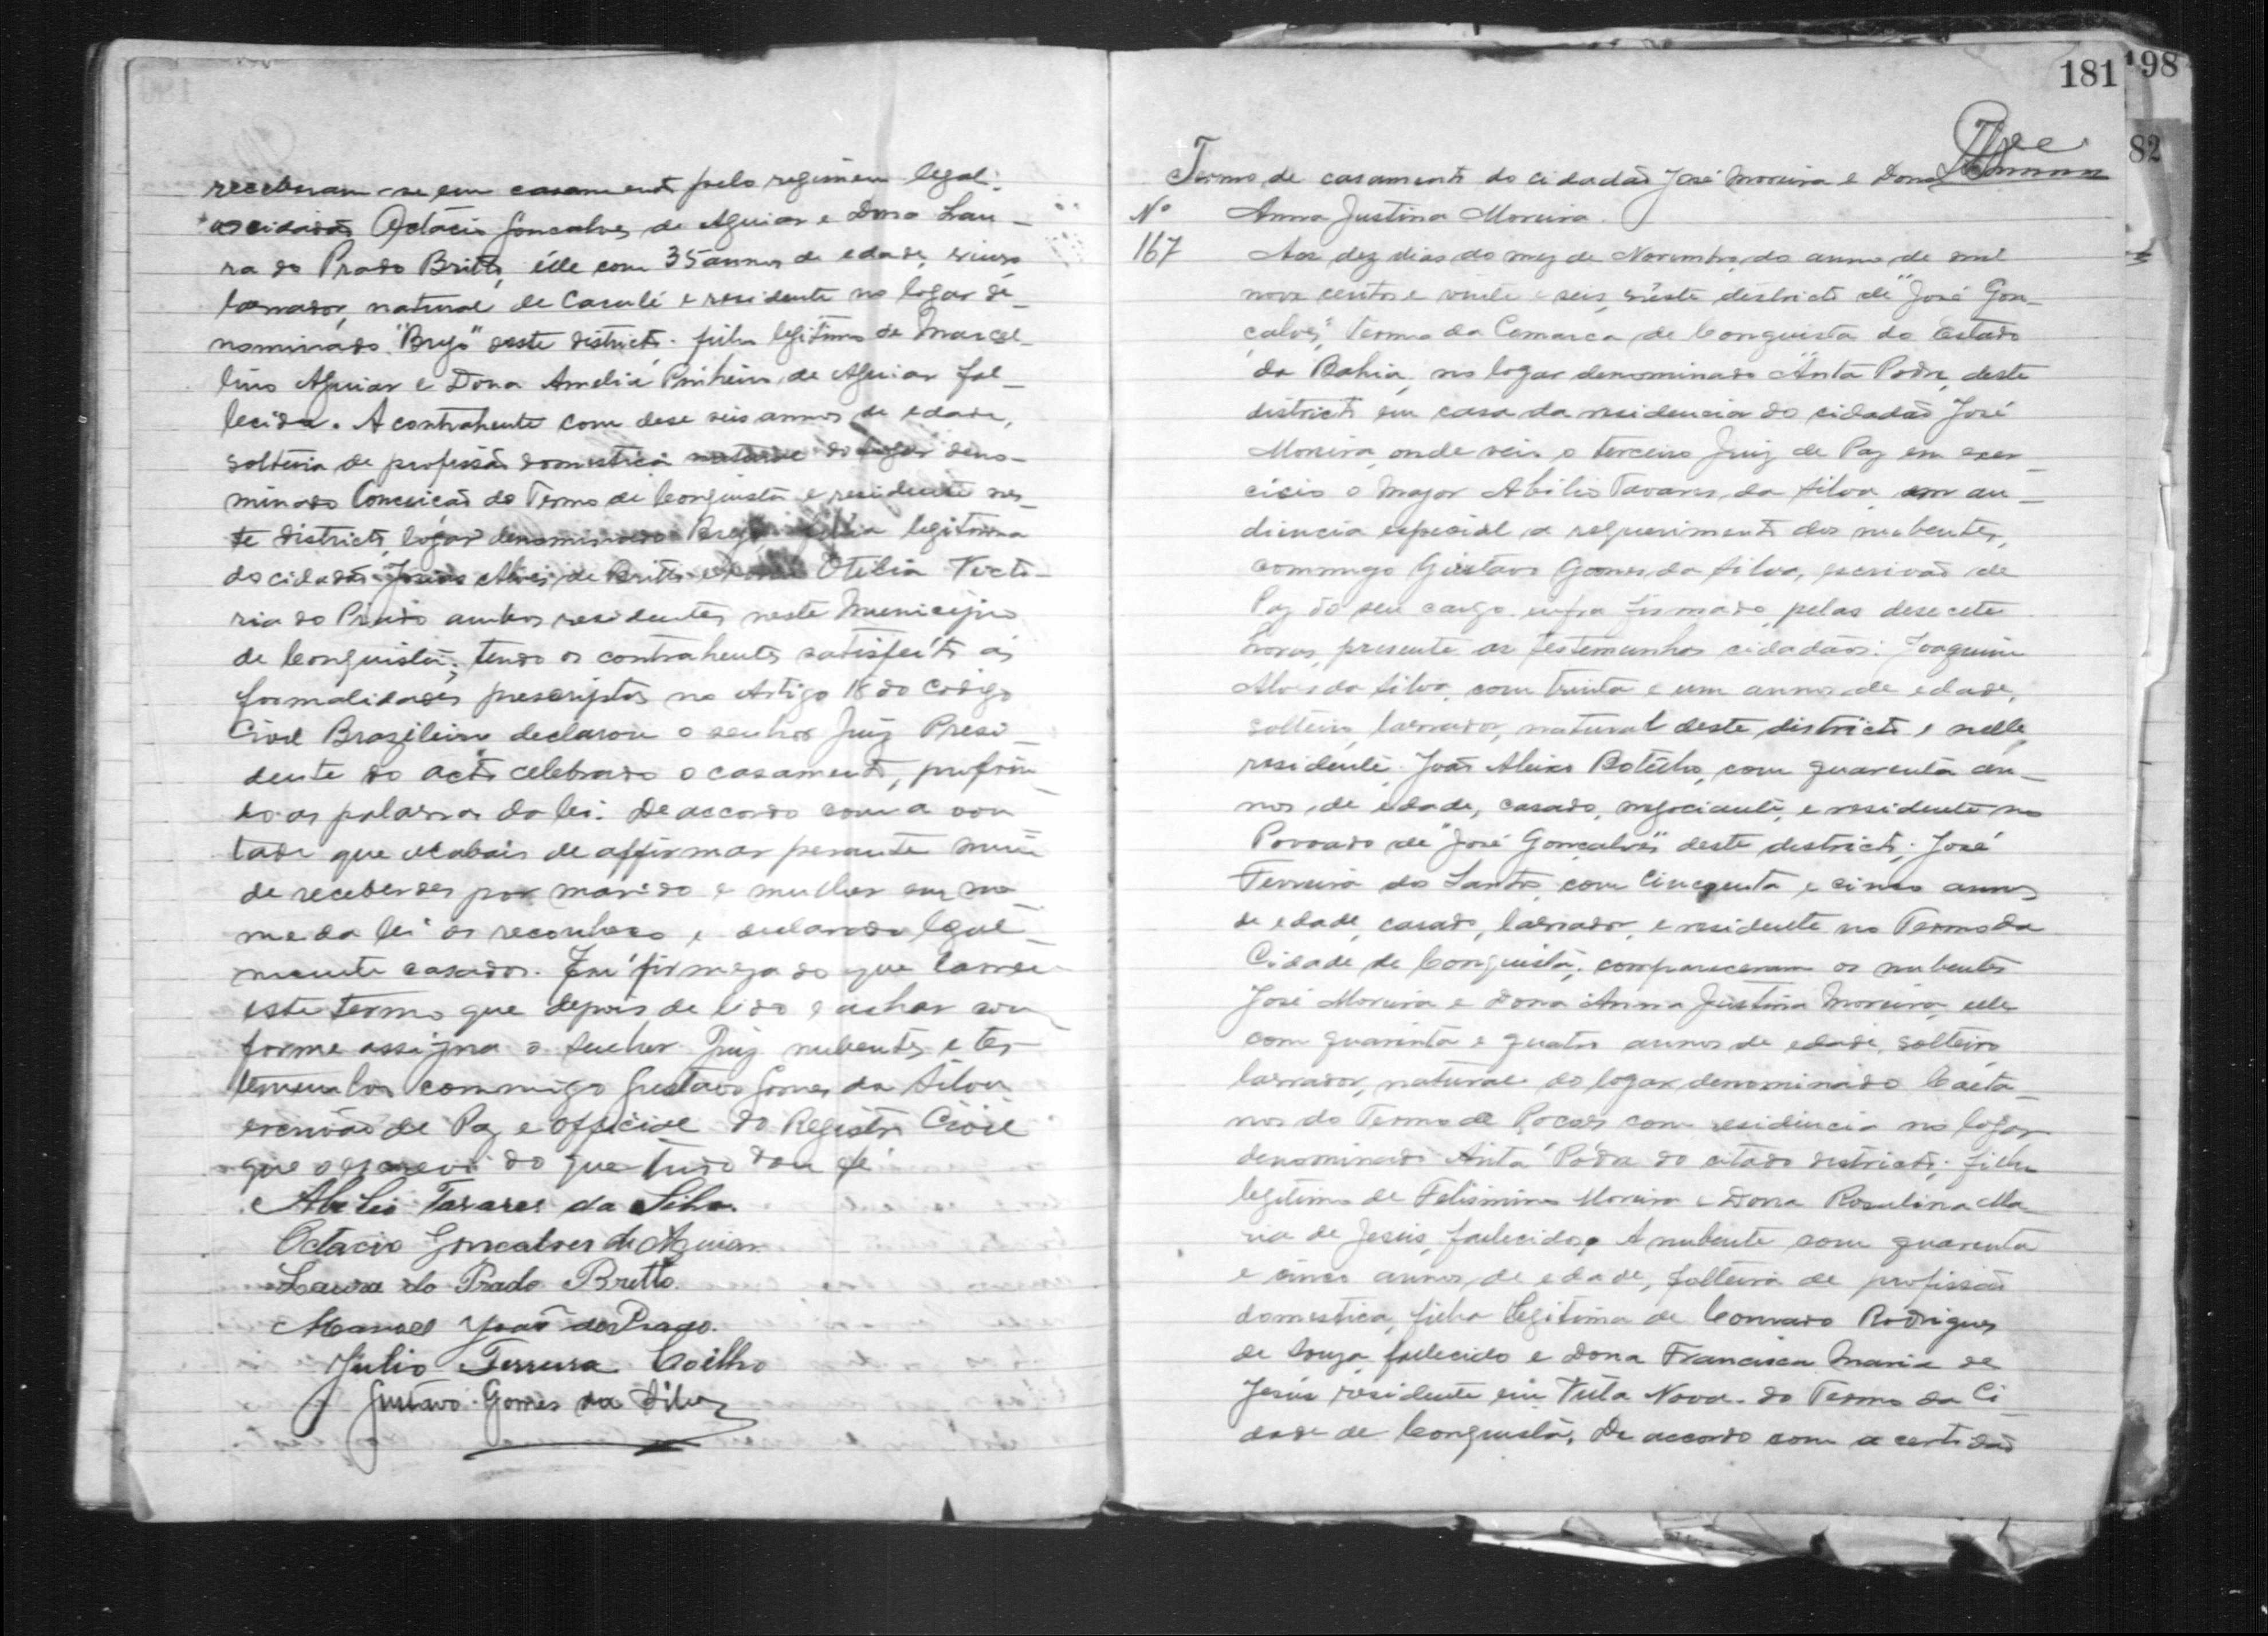 receberam-se em casamento pelo regimen legal:
os cidadãos Octacio Gonsalves de Aguiar e Dona Lau-
ra do Prado Britto, élle com 35 annos de edade, viuvo
lavrador, natural de Caculé e residente no logar de-
nominado "Brejo" deste districto. filho legitimo de Marcel-
lino Aguiar e Dona Amelia Pinheiro de Aguiar fal-
lecida. A contrahente com dese seis annos de edade,
solteira de profissão domestica natural do logar deno-
minado Conceição do Termo de Conquista e residente nes-
te districto, logar denominado Brejo filha legitima
do cidadão Josias Alves de Britto e Dona Otilia Victo-
ria do Prado ambos residentes neste Municipio
de Conquista; tendo os contrahentes satisfeito as
formalidades prescriptas no Artigo 18 do Codigo
Civil Brazileiro declarou o senhor Juiz Presi-
dente do acto celebrado o casamento, proferin-
do as palavras da lei: De accordo com a von
tade que acabais de affirmar perante mim
de receberdes por marido e mulher em no-
me da lei os reconheço e declaro legal-
mente casados. Em firmeza do que lavrei
este termo que depois de lido e achar con-
forme assigna o senhor Juiz nubentes e tes-
temunhas commigo Gustavo Gomes da Silva
escrivão de Paz e official do Registro Civil
que o escrevi do que tudo dou fé
Abilio Tavares da Silva.
Octacio Gonçalves de Aguiar
Laura do Prado Britto.
Manoel João do Prado.
Julio Ferreira Coêlho
Gustavo Gomes da Silva
181 198
82
Termo de casamento do cidadão José Moreira e Dona
Nº Anna Justina Moreira.
167 Aos dez dias do mez de Novembro do anno de mil
nove centos e vinte e seis, n'este districto de "José Gon-
çalves", Termo da Comarca de Conquista do Estado
da Bahia, no logar denominado "Anta Podre, deste
districto em casa da residencia do cidadão José
Moreira, onde veio o terceiro Juiz de Paz em exer-
cicio o Major Abilio Tavares da Silva em au-
diencia especial a requerimento dos nubentes,
commigo Gustavo Gomes da Silva, escrivão de
Paz do seu cargo infra firmado, pelas desecete
horas, presente as testemunhas cidadãos: Joaquim
Alves da Silva, com trinta e um annos de edade,
solteiro, lavrador, natural deste districto e nelle
residente. João Aleixo Botêlho, com quarenta an-
nos, de edade, casado, negociante, e residente no
Povoado de "José Gonçalves" deste districto; José
Ferreira dos Santos com cincoenta e cinco annos
de edade, casado, lavrador, e residente no Termo da
Cidade de Conquista; compareceram os nubentes
José Moreira e Dona Anna Justina Moreira, elle
com quarenta e quatro annos de edade, solteiro
lavrador, natural do logar denominado Caeta-
nos do Termo de Poções com residencia no logar
denominado Anta Pódre do citado districto; filho
legitimo de Felismino Moreira e Dona Rosulina Ma-
ria de Jesus, fallecidos A nubente com quarenta
e cinco annos, de edade, solteira de profissão
domestica, filha legitima de Conrado Rodrigues
de Souza fallecido e Dona Francisca Maria de
Jesús residente em Vila Nova. do Termo da Ci-
dade de Conquista, De accordo com a certidão